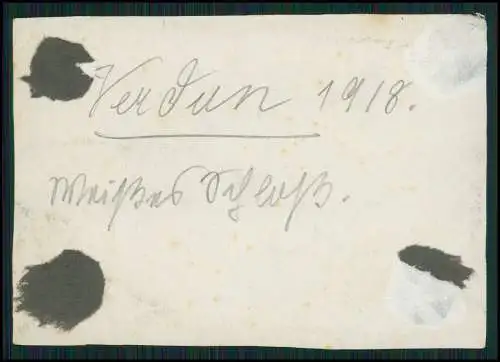 Verdun 1918.
Weißes Schloß.